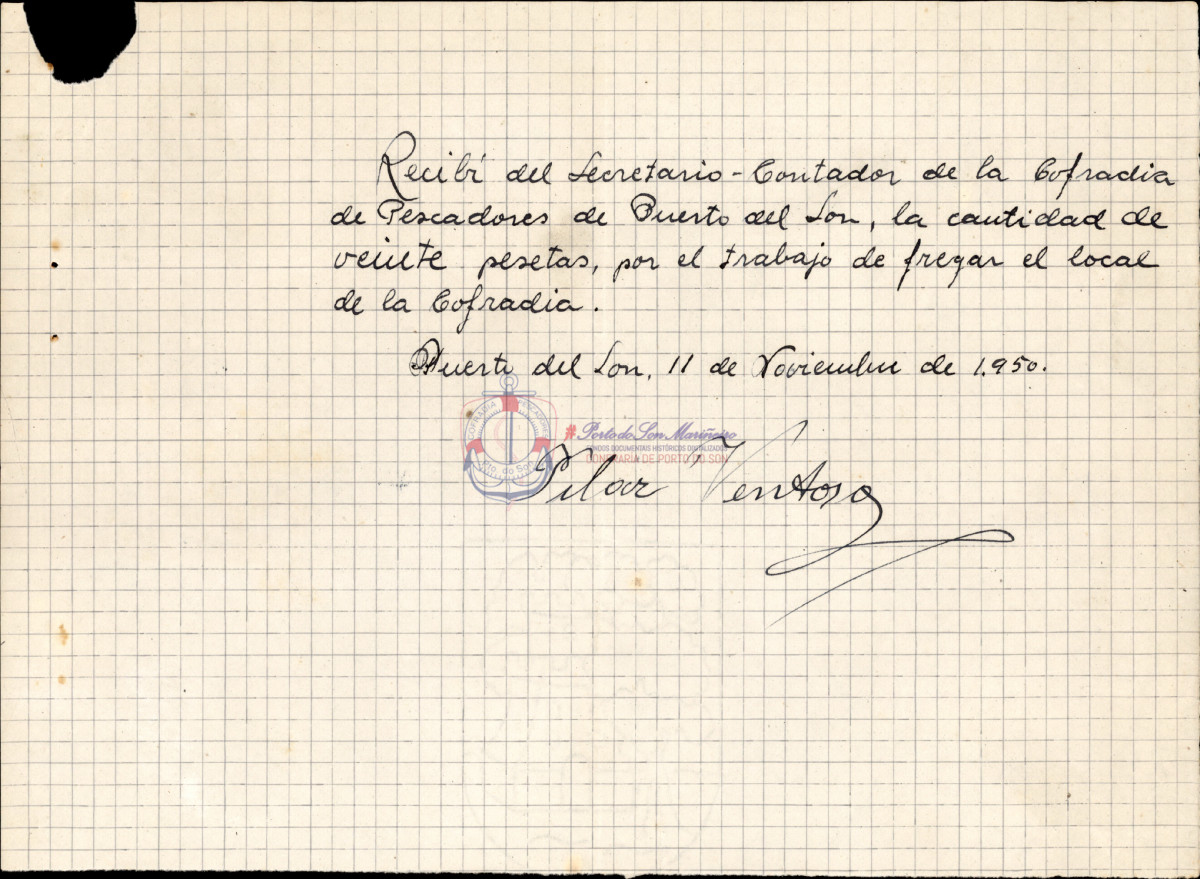 Recibí del Secretario-Contador de la Cofradia
de Pescadores de Puerto del Son, la cantidad de
veinte pesetas, por el trabajo de fregar el local
de la Cofradia.
Puerto del Son, 11 de Noviembre de 1.950.
COFRADIA PESCADORES
Pto. do Son
#Porto do Son Mariñeiro
FONDOS DOCUMENTAIS HISTÓRICOS DIGITALIZADOS
CONFRARÍA DE PORTO DO SON
Pilar Ventosa